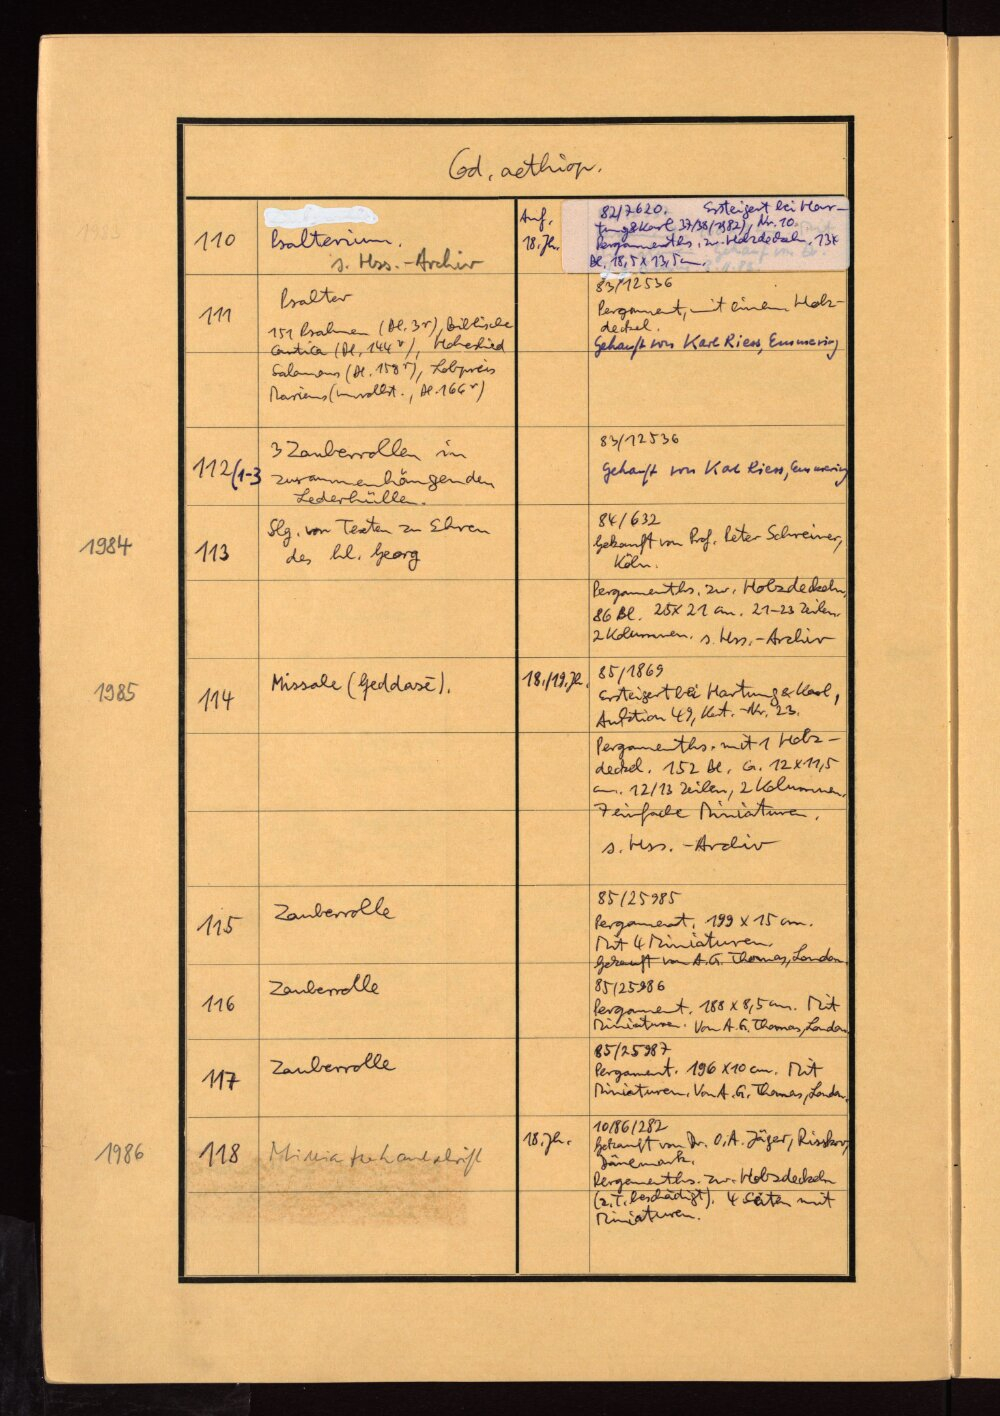 Cod. aethiop.
110
Psalterium.
s. Hss.-Archiv
Anf.
18. Jh.
82/7620. Ersteigert bei Har-
tung & Karl 37/38 (1982), Nr. 10.
Pergamenths. zw. Holzdeckeln. 134
Bl. 18,5 x 13,5 cm.
111
Psalter
151 Psalmen (Bl. 3r), Biblische
Cantica (Bl. 144v), Hoheslied
Salomons (Bl. 158r), Lobpreis
Mariens (unvollst., Bl. 166v)
83/12536
Pergament, mit einem Holz-
deckel.
Gekauft von Karl Riess, Emmering
112/1-3
3 Zauberrollen in
zusammenhängenden
Lederhüllen.
83/12536
Gekauft von Karl Riess, Emmering
1984
113
Slg. von Texten zu Ehren
des hl. Georg
84/632
Gekauft von Prof. Peter Schreiner,
Köln.
Pergamenths. zw. Holzdeckeln,
86 Bl. 25 x 21 cm. 21-23 Zeilen.
2 Kolumnen. s. Hss.-Archiv
1985
114
Missale (Geddasē).
18./19. Jh.
85/1869
Ersteigert bei Hartung & Karl,
Auktion 49, Kat.-Nr. 23.
Pergamenths. mit 1 Holz-
deckel. 152 Bl. ca. 12 x 11,5
cm. 12/13 Zeilen, 2 Kolumnen.
7 einfache Miniaturen.
s. Hss.-Archiv
115
Zauberrolle
85/25985
Pergament. 199 x 15 cm.
Mit 4 Miniaturen.
Gekauft von A.G. Thomas, London.
116
Zauberrolle
85/25986
Pergament. 188 x 8,5 cm. Mit
Miniaturen. Von A.G. Thomas, London.
117
Zauberrolle
85/25987
Pergament. 196 x 10 cm. Mit
Miniaturen. Von A.G. Thomas, London.
1986
118
18. Jh.
10/86/282
Gekauft von Dr. O.A. Jäger, Risskov,
Dänemark.
Pergamenths. zw. Holzdeckeln
(z.T. beschädigt). 4 Seiten mit
Miniaturen.